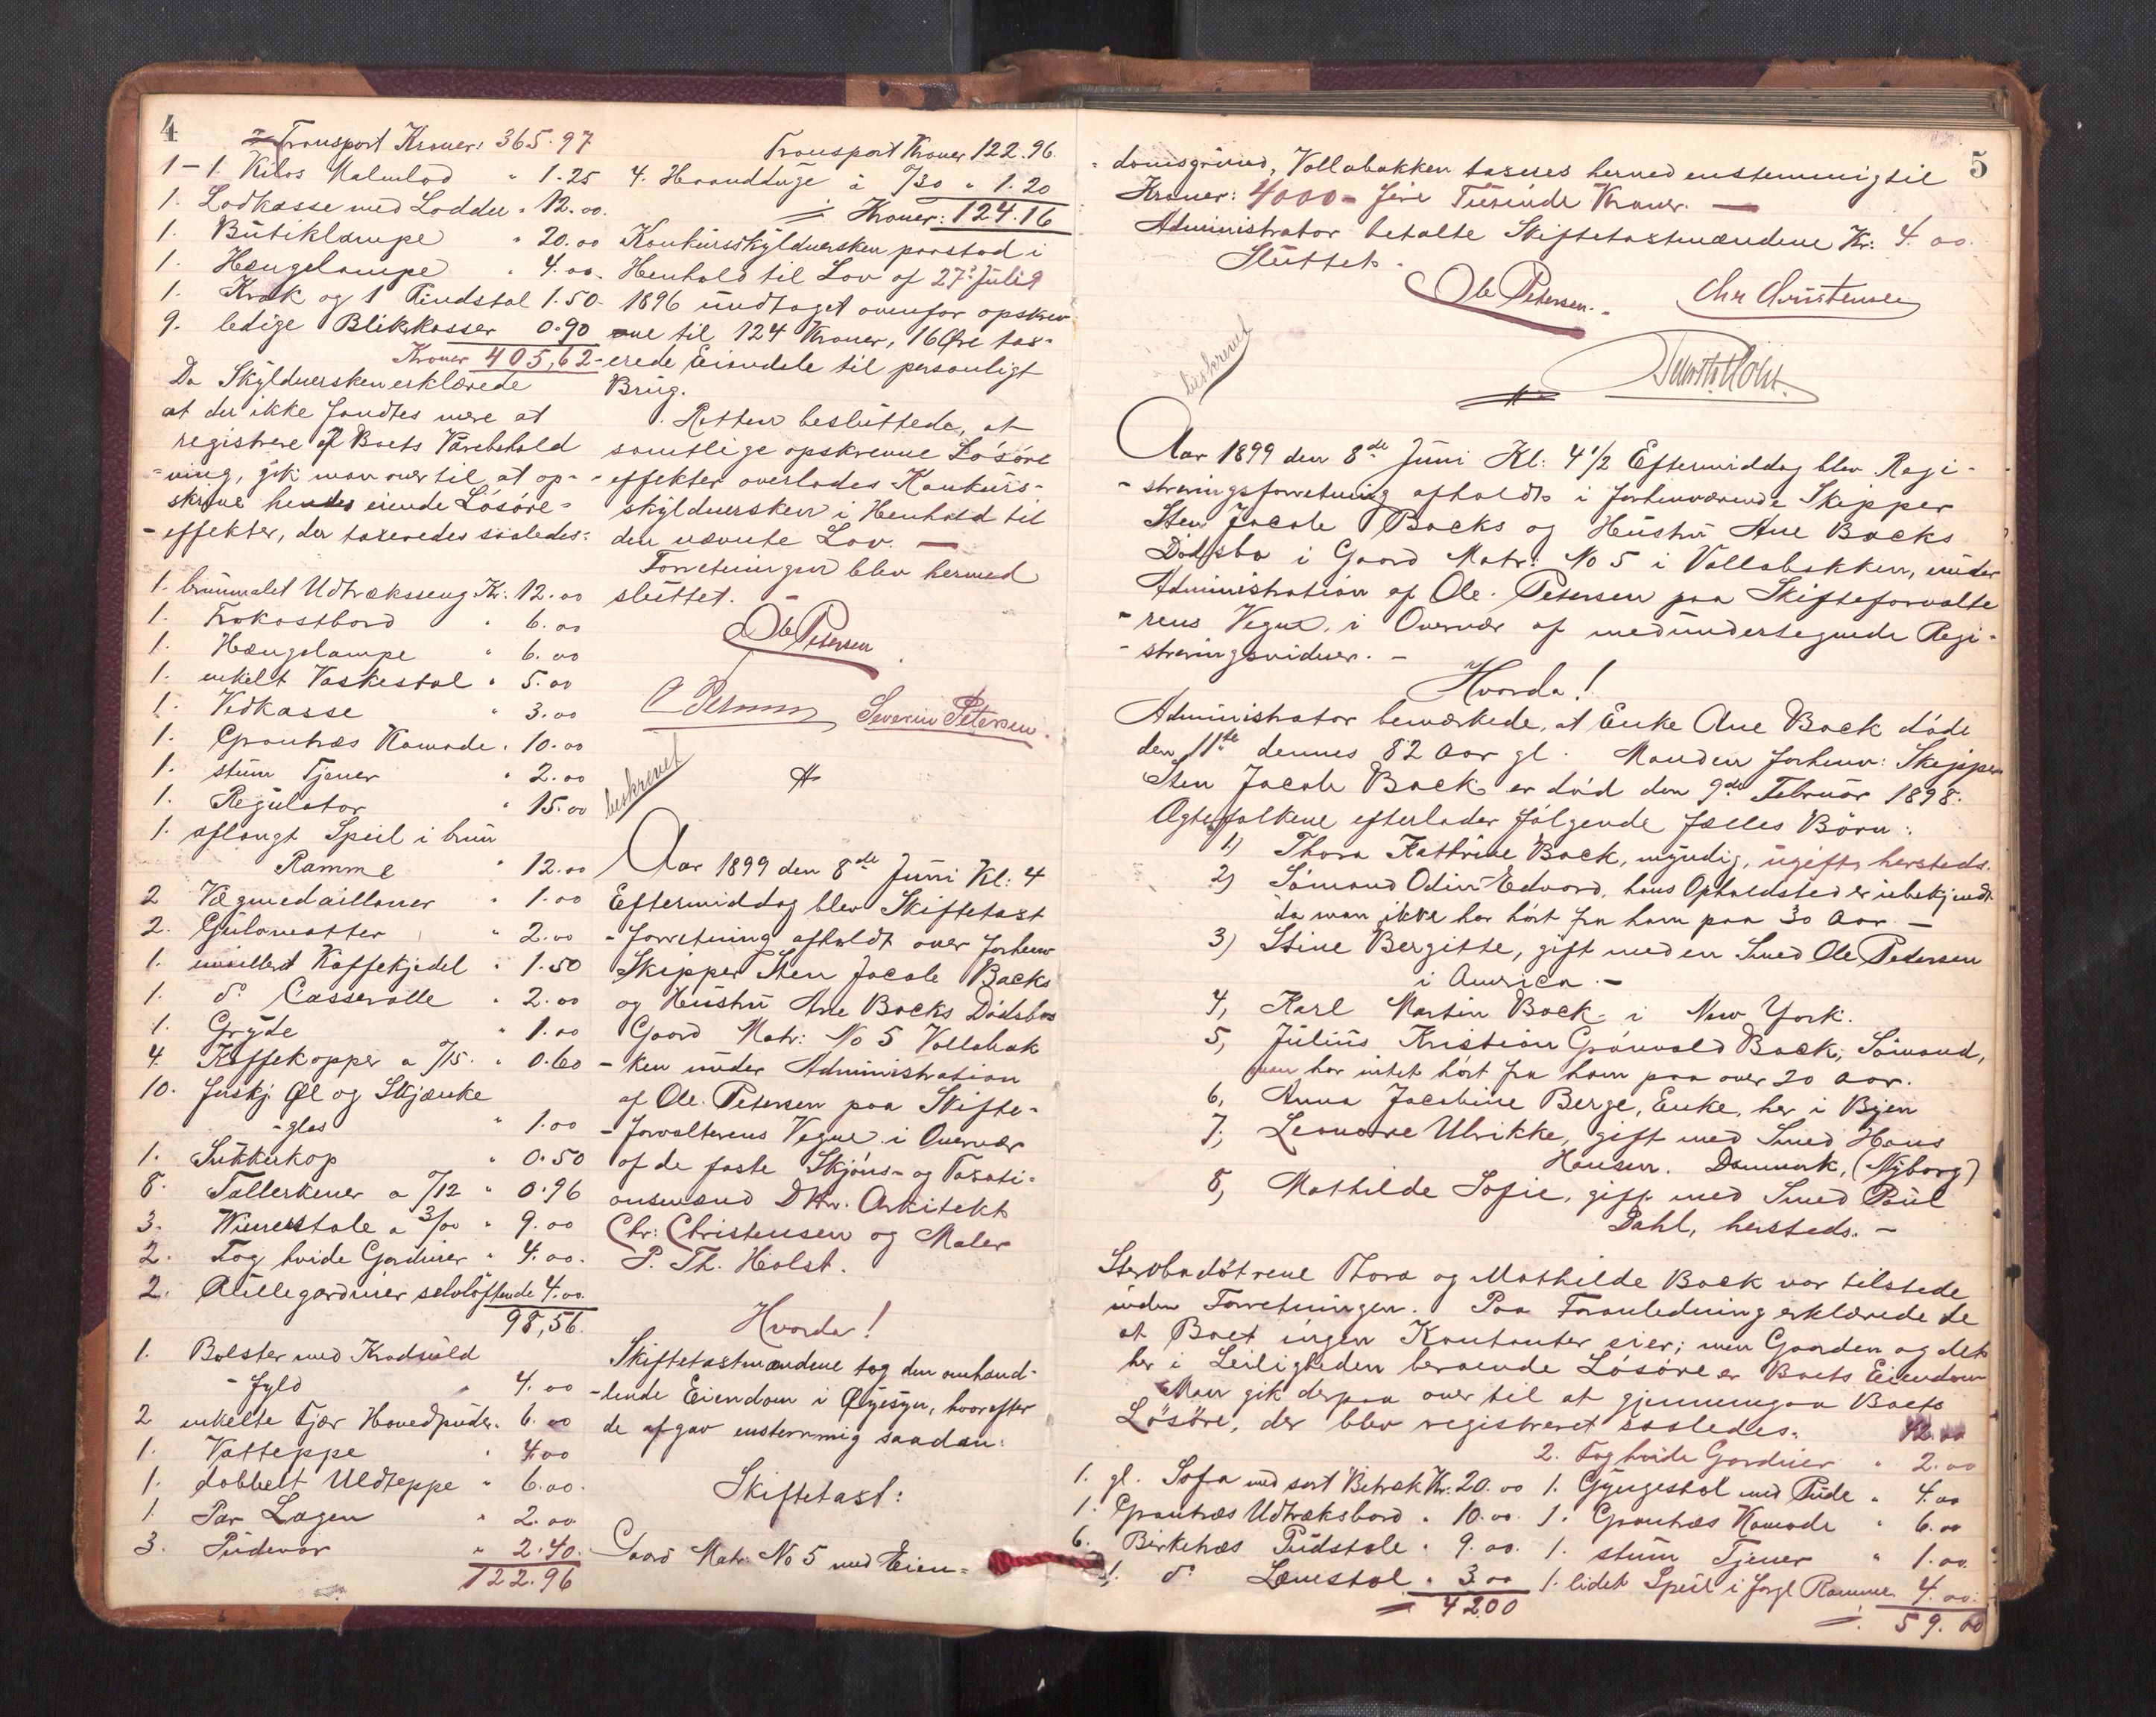 4
Transport Kroner: 365.97
1-1. Kilos Malmlod " 1.25
1. Lodkasse med Lodder " 12.00.
1. Butiklampe " 20.00
1. Hængelampe " 4.00.
1. Krak og 1 Pindstol 1.50.
9. ledige Blikkasser 0.90
Kroner 405,62
Da Skyldnersken erklærede
at der ikke fandtes mere at
registrere af Boets Varebehold
-ning, gik man over til at op-
skrive hendes eiende Løsøre-
-effekter, der taxeredes saaledes:
1. brunmalet Udtræksseng Kr: 12.00
1. Frokostbord " 6.00
1. Hængelampe " 6.00
1. enkelt Vaskestol " 5.00
1. Vedkasse " 3.00
1. Grantræs Komode " 10.00
1. stum Tjener " 2.00
1. Regulator " 15.00
1. aflangt Speil i brun
Ramme " 12.00
2 Vægmedailloner " 1.00
2. Gulvmatter " 2.00
1. emillert Kaffekjedel " 1.50
1. do Casserolle " 2.00
1. Gryde " 1.00
4. Kaffekopper a "/15. " 0.60
10. forskj Øl og Skjænke
-glas " 1.00
1. Sukkerkop " 0.50
8. Tallerkener a "/12 " 0.96
3. Wienerstole a 3/00 " 9.00
2. Fag hvide Gardiner " 4.00.
2. Rullegardiner selvløftende 4.00.
98,56.
1. Bolster med Krøduld
-fyld " 4.00
2 enkelte Fjær Hovedpuder. 6.00
1. Vatteppe " 4.00
1. dobbelt Uldteppe " 6.00.
1. Par Lagen " 2.00.
3. Pudevar " 2.40.
122.96
Transport Kroner 122.96.
4. Haandduge à "/30 " 1.20
Kroner: 124.16
Konkursskyldnersken paastod i
Henhold til Lov af 27de Juli
1896 undtaget ovenfor opskrev
-ne til 124 Kroner, 16 Øre tax-
-erede Eiendele til personligt
Brug.
Retten besluttede, at
samtlige opskrevne Løsøre
-effekter overlodes Konkurs-
skyldnersken i Henhold til
den nævnte Lov. —
Forretningen blev hermed
sluttet. -
Ole Petersen
Severin Petersen.
beskrevet
Aar 1899 den 8de Juni Kl: 4
Eftermiddag blev Skiftetaxt
-forretning afholdt over forhenv
Skipper Sten Jacob Backs
og Hustru Ane Backs Dødsbos
Gaard Matr: No 5 Vollabak
-ken under Administration
af Ole. Petersen paa Skifte-
-forvalterens Vegne i Overvær
af de faste Skjøns- og Taxati-
onsmænd DHrr. Arkitekt
Chr: Christensen og Maler
P. Th. Holst.
Hvorda!
Skiftetaxtmændene tog den omhand-
-lende Eiendom i Øiesyn, hvorefter
de afgav enstemmig saadan:
Skiftetaxt:
Gaard Matr: No 5 med Eien-
5
-domsgrund, Vollabakken taxeres herved enstemmig til
Kroner: 4000 - fire Tusinde Kroner. —
Administrator betalte Skiftetaxtmændene Kr: 4.00.
Sluttet.
Ole Petersen. Chr Christensen
P Th Holst.
beskrevet
Aar 1899 den 8de Juni Kl: 4 1/2 Eftermiddag blev Regi-
-streringsforretning afholdt i forhenværende Skipper
Sten Jacob Backs og Hustru Ane Backs
Dødsbo i Gaard Matr: No 5 i Vollabakken, under
Administration af Ole. Petersen paa Skifteforvalte
-rens Vegne, i Overvær af medundertegnede Regi-
-streringsvidner. -
Hvorda!
Administrator bemærkede, at Enke Ane Back døde
den 11te dennes 82 Aar gl. Manden forhenv: Skipper
Sten Jacob Back er død den 9de Februar 1898.
Ægtefolkene efterlader følgende fælles Børn:
1) Thora Kathrine Back, myndig, ugift, hersteds.
2) Sømand Odin Edvard, hans Opholdsted er ubekjendt
da man ikke har hørt fra ham paa 30 Aar. —
3) Stine Bergitte, gift med en Smed Ole Petersen
i America. -
4, Karl Martin Back, i New York.
5, Julius Kristian Grønvold Back, Sømand,
man har intet hørt fra ham paa over 20 Aar.
6, Anna Jacobine Berge, Enke, her i Byen
7, Leonore Ulrikke, gift med Smed Hans
Hansen. Danmark, (Nyborg)
8, Mathilde Sofie, gift med Smed Paul
Dahl, hersteds. -
Stervbodøtrene Thora og Mathilde Back var tilstede
under Forretningen. Paa Foranledning erklærede de
at Boet ingen Kontanter eier; men Gaarden og det
her i Leiligheden beroende Løsøre er Boets Eiendom
Man gik derpaa over til at gjennemgaa Boets
Løsøre, der blev registreret saaledes. 42.00
1. gl. Sofa med sort Betræk Kr. 20.00
1. Grantræs Udtræksbord " 10.00.
6. Birketræs Pudstole " 9.00.
1. do Lænestol " 3.00
42.00
2. Fag hvide Gardiner " 2.00
1. Gyngestol med Pude " 4.00
1. Grantræs Komode " 6.00
1. stum Tjener " 1.00.
1. lidet Speil i forgl Ramme 4.00.
59.00